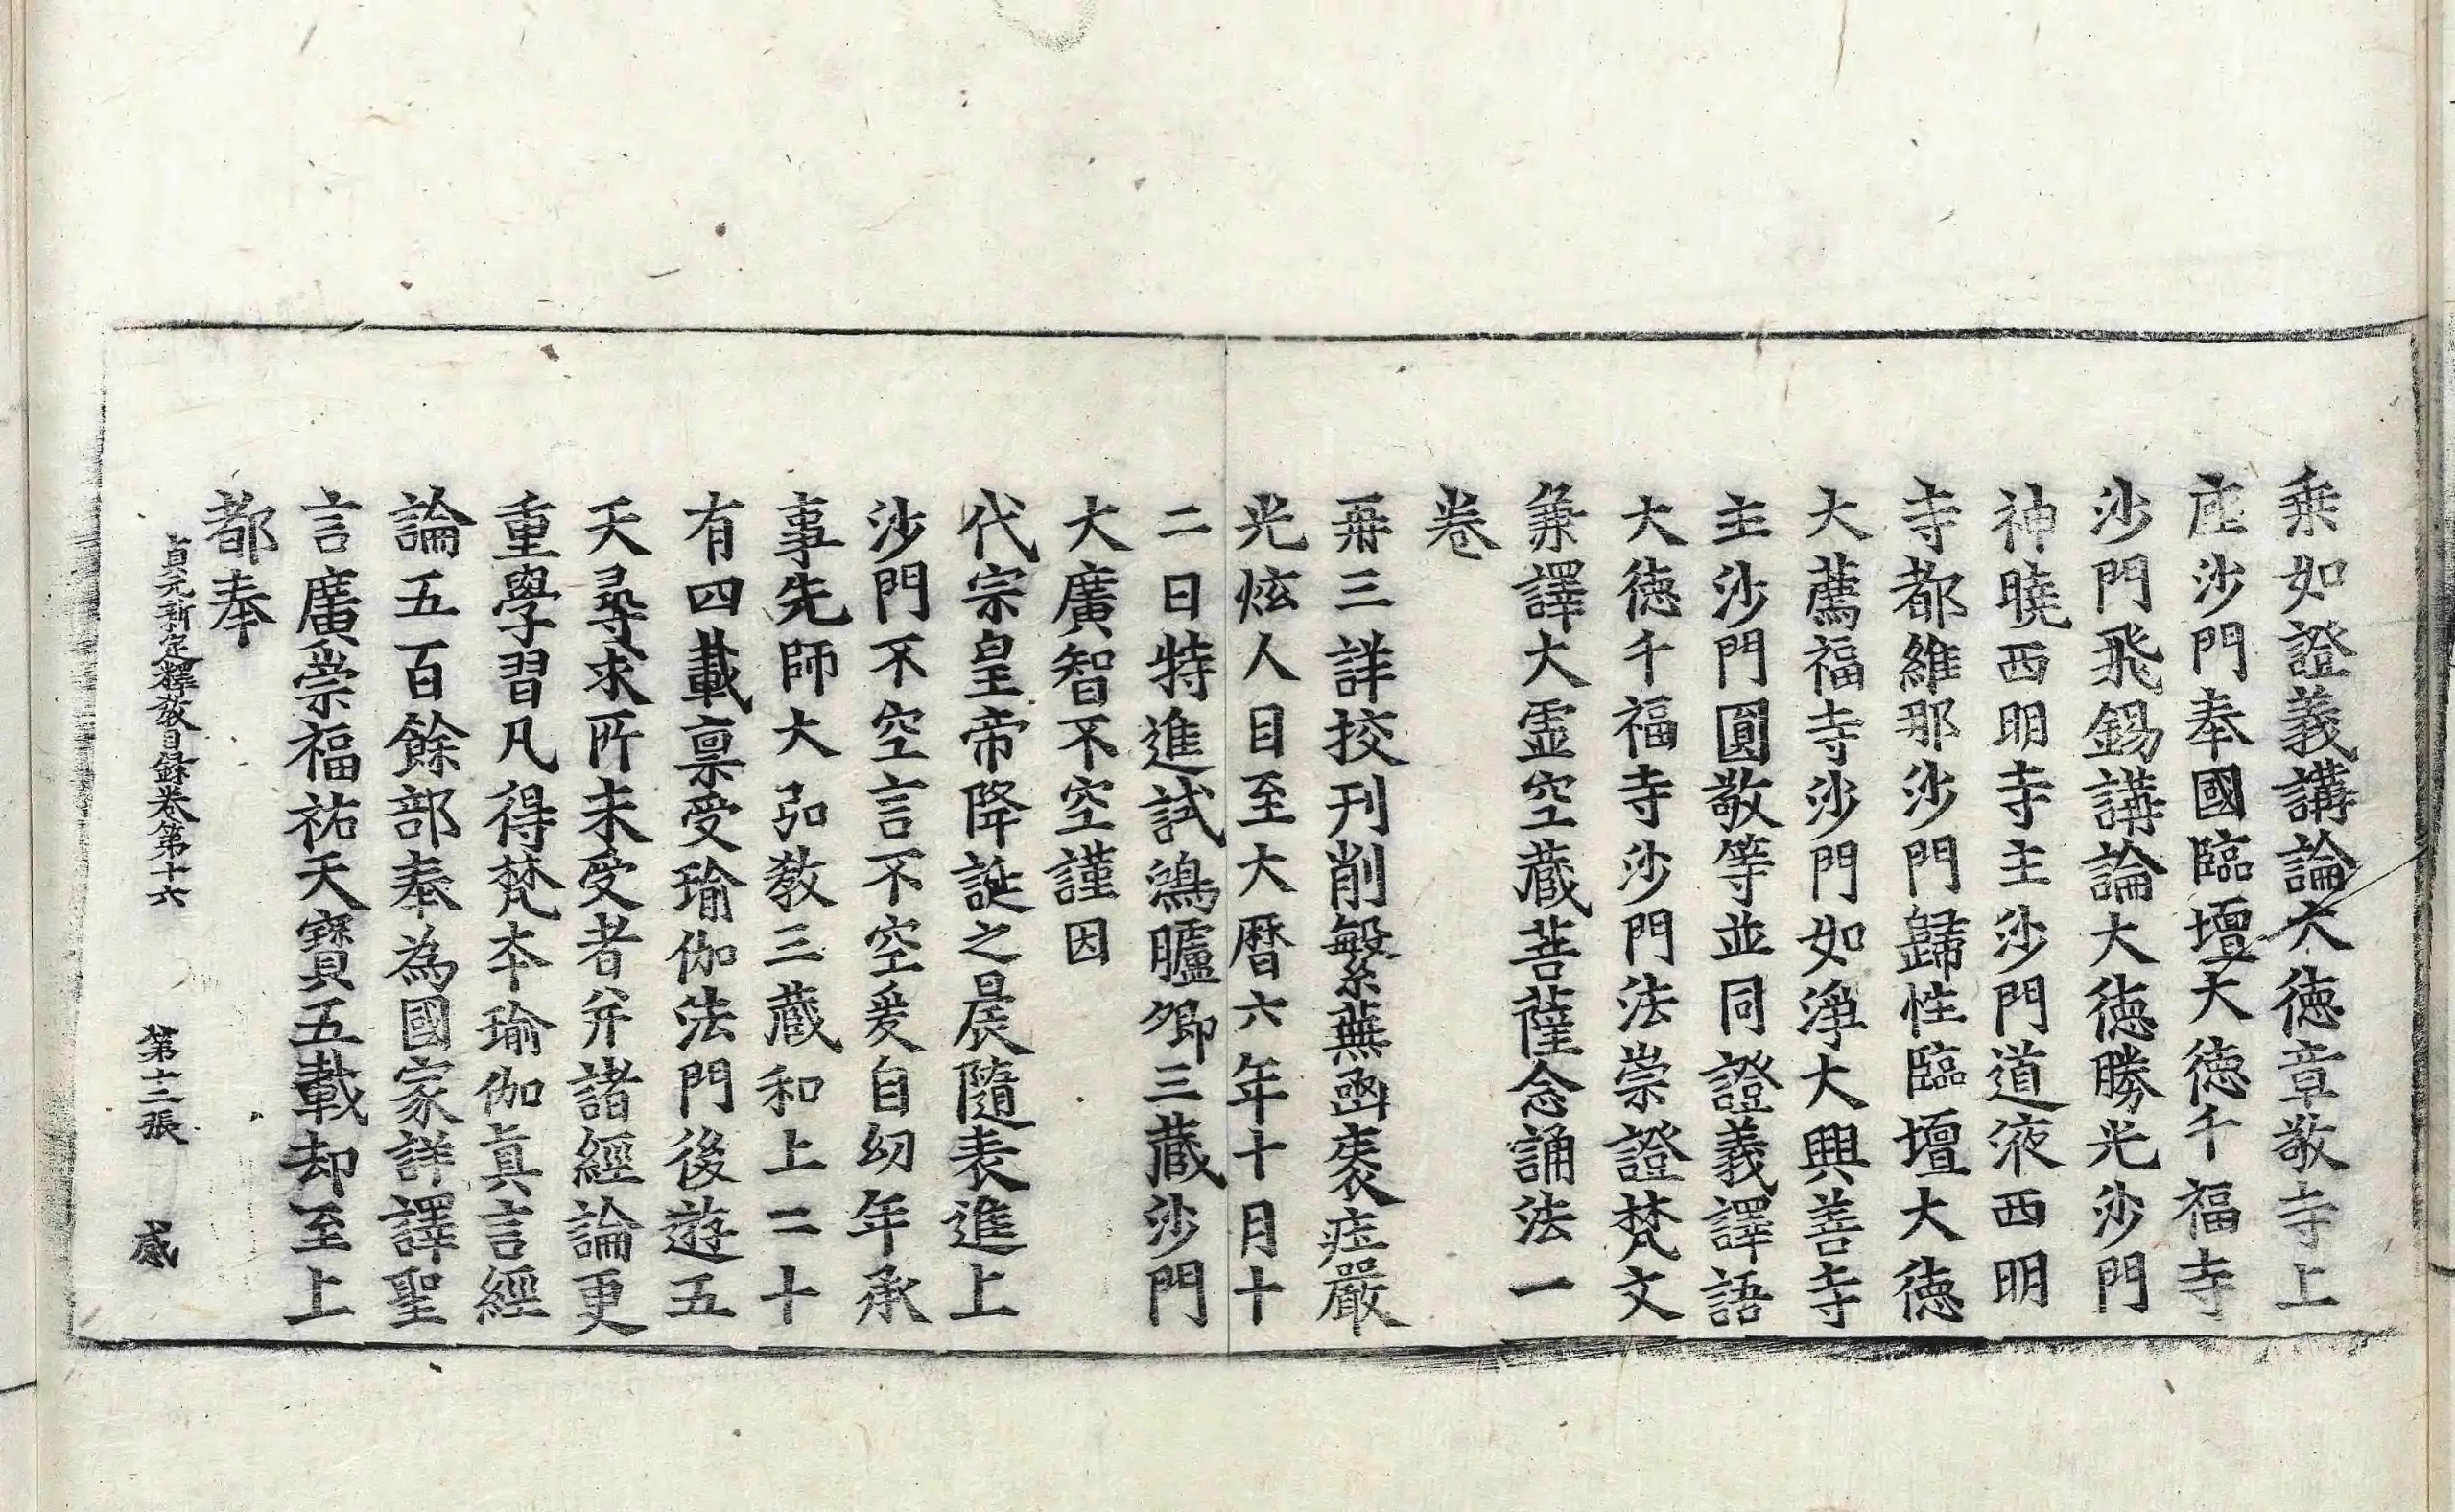 乗如證義講論大徳章敬寺上
座沙門奉國臨壇大徳千福寺
沙門飛錫講論大徳勝光沙門
神曉西明寺主沙門道液西明
寺都維那沙門歸性臨壇大徳
大薦福寺沙門如淨大興善寺
主沙門圓敬等並同證義譯語
大徳千福寺沙門法崇證梵文
兼譯大虛空蔵菩薩念誦法一
卷
再三詳挍刊削繁蕪函袠庄嚴
光炫人目至大曆六年十月十
二日特進試鴻臚卿三蔵沙門
大廣智不空謹因
代宗皇帝降誕之晨隨表進上
沙門不空言不空爰自幼年承
事先師大弘教三蔵和上二十
有四載禀受瑜伽法門後遊五
天尋求所未受者并諸經論更
重學習凡得梵本瑜伽眞言經
論五百餘部奉為國家詳譯聖
言廣崇福祐天寶五載却至上
都奉
貞元新定釋教目錄卷第十六 第十三張